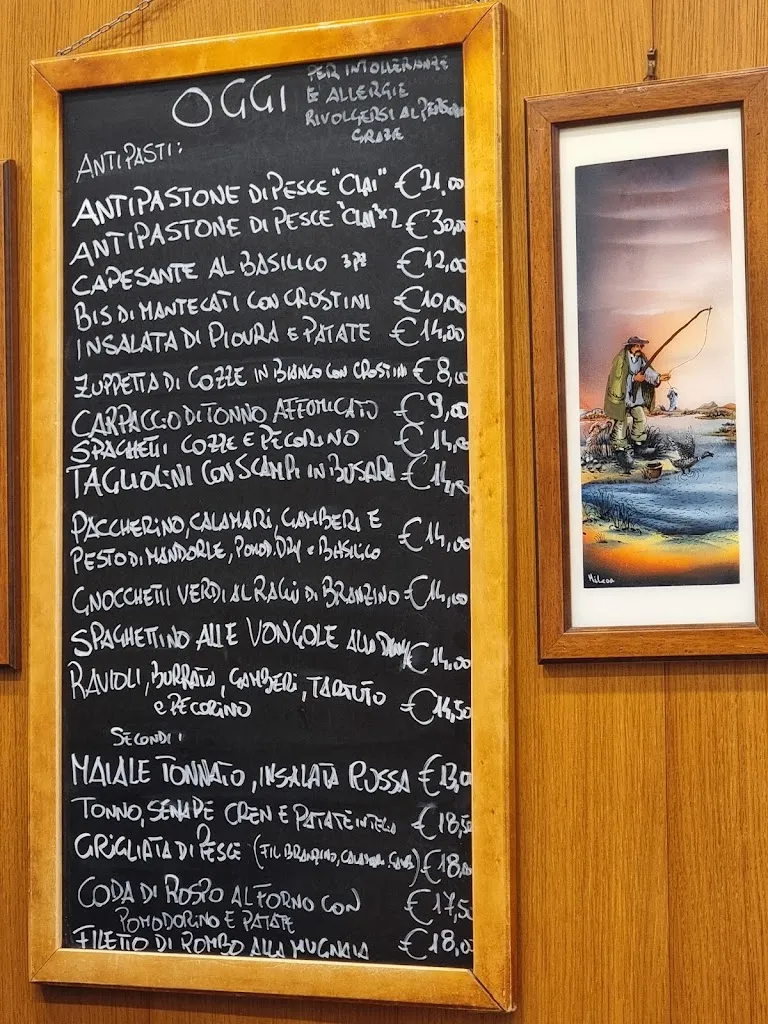 OGGI
PER INTOLLERANZE
E ALLERGIE
RIVOLGERSI AL
GRAZE
ANTIPASTI:
ANTIPASTONE DI PESCE "CLAI" €21,00
ANTIPASTONE DI PESCE "CLAI" x2 €30,00
CAPESANTE AL BASILICO 3PZ €12,00
BIS DI MANTECATI CON CROSTINI €10,00
INSALATA DI PIOVRA E PATATE €14,00
ZUPPETTA DI COZZE IN BIANCO CON CROSTINI €8,00
CARPACCIO DI TONNO AFFUMICATO €9,00
SPAGHETTI COZZE E PECORINO €14,00
TAGLIOLINI CON SCAMPI IN BUSARA €14,00
PACCHERINO, CALAMARI, GAMBERI E
PESTO DI MANDORLE, POMOD. DRY E BASILICO €14,00
GNOCCHETTI VERDI AL RAGÙ DI BRANZINO €14,00
SPAGHETTINO ALLE VONGOLE ALLA €14,00
RAVIOLI, BURRATA, GAMBERI, TARTUFO
E PECORINO €14,50
SECONDI:
MAIALE TONNATO, INSALATA RUSSA €13,00
TONNO, SENAPE CREN E PATATE IN TEGLIA €18,50
GRIGLIATA DI PESCE (FIL BRANZINO, CALAMARI, GAMB) €18,00
CODA DI ROSPO AL FORNO CON €17,50
POMODORINO E PATATE
FILETTO DI ROMBO ALLA MUGNAIA €18,0